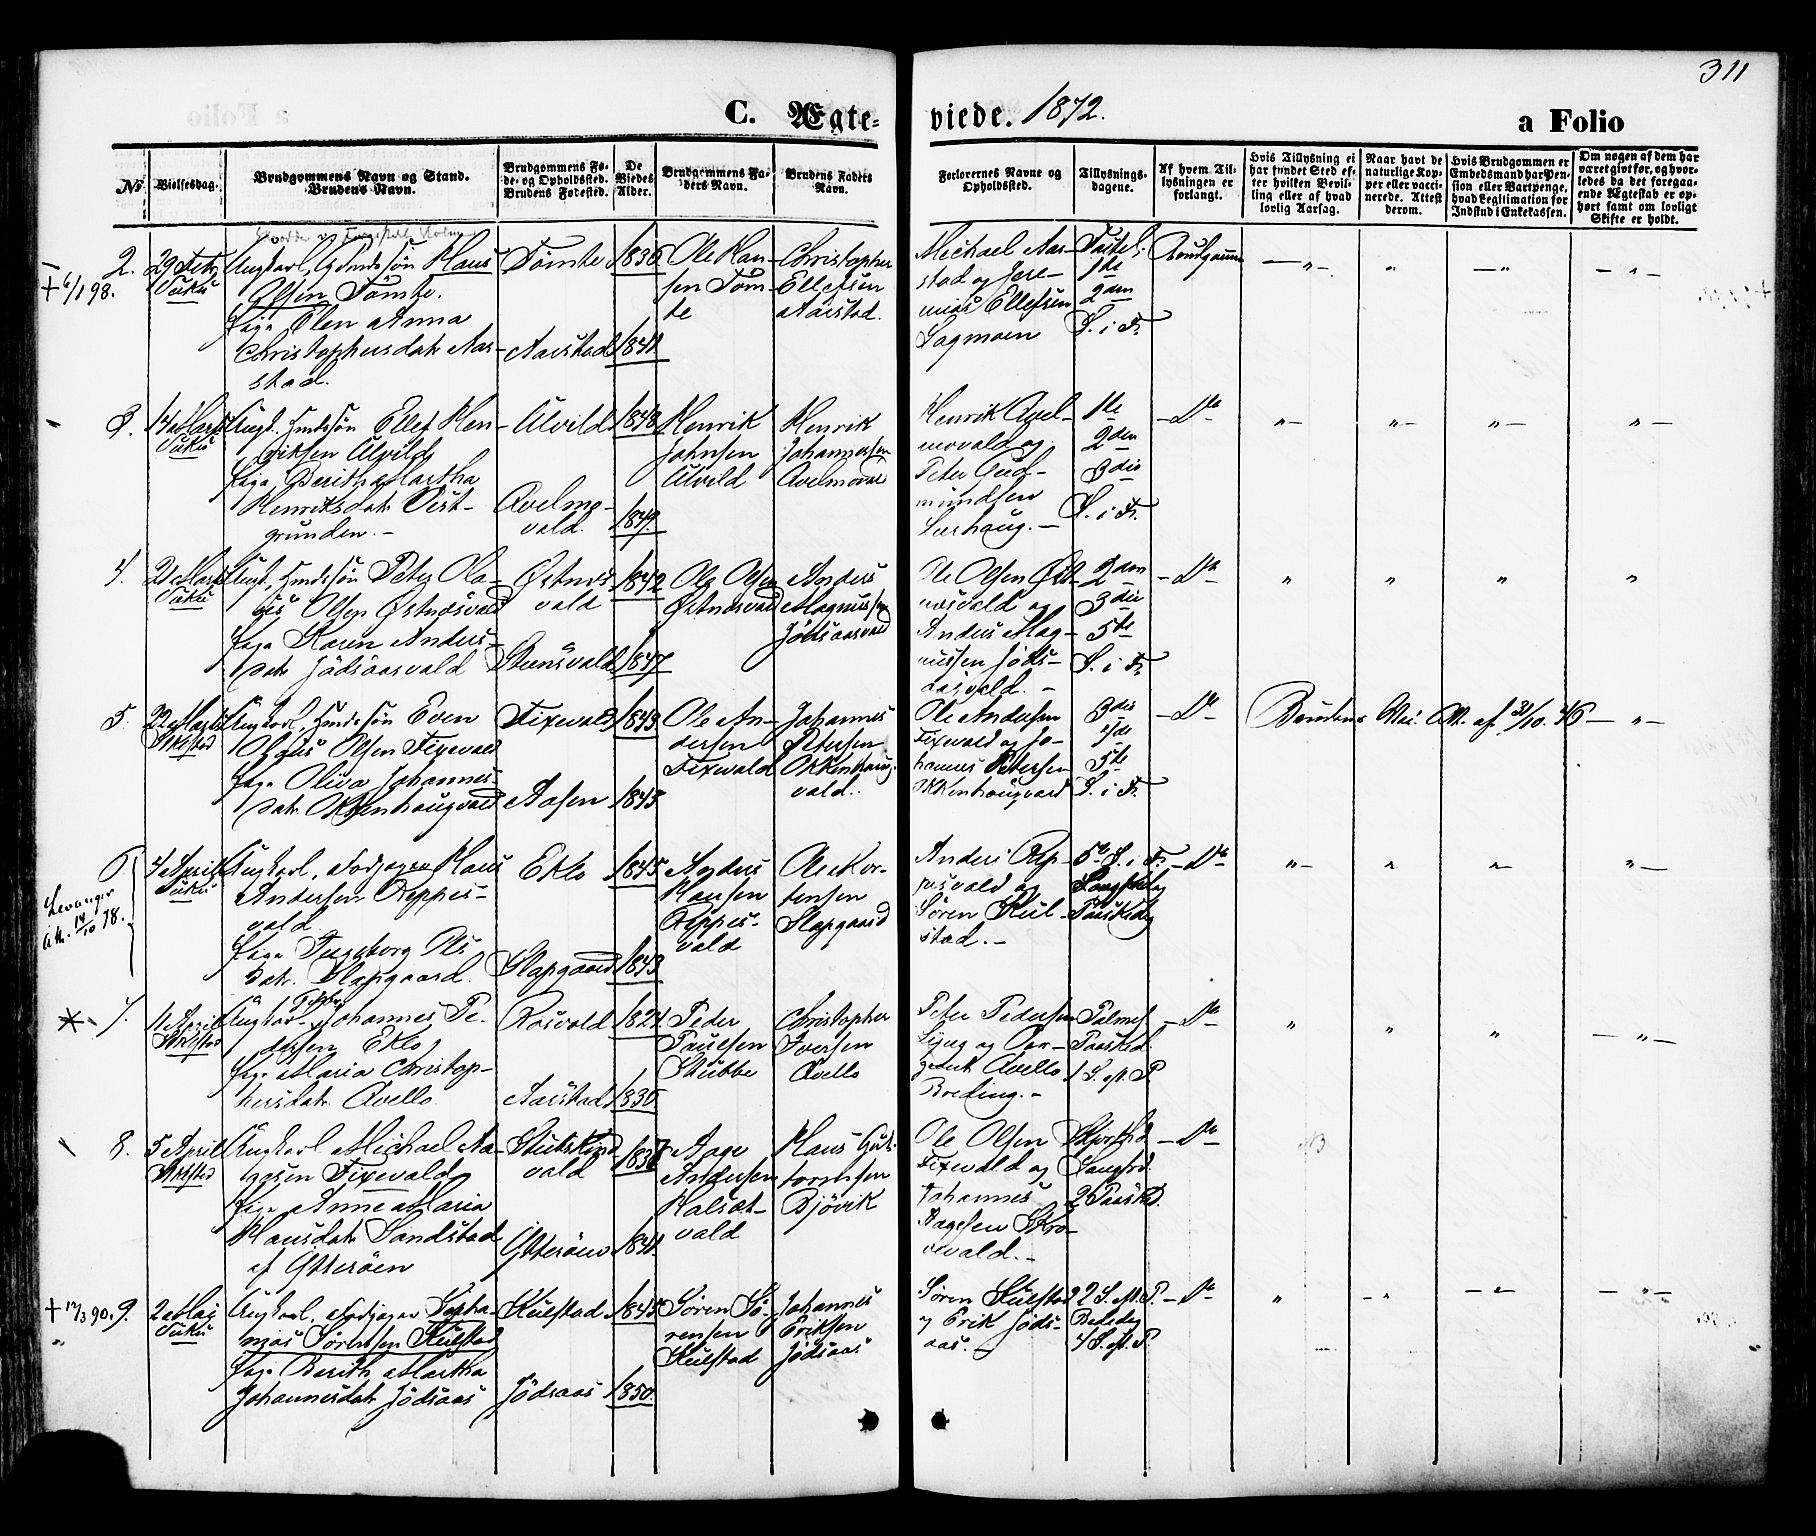 311
C. Ægte-
viede. 1872.
a Folio
No.
Vielsesdag.
Brudgommens Navn og Stand.
Brudens Navn.
Brudgommens Fø-
de- og Opholdssted.
Brudens Fødested.
De
Viedes
Alder.
Brudgommens Fa-
ders Navn.
Brudens Faders
Navn.
Forlovernes Navne og
Opholdssted.
Tillysnings-
dagene.
Af hvem Til-
lysningen er
forlangt.
Hvis Tillysning ei
har fundet Sted ef-
ter hvilken Bevil-
ling eller af hvad
lovlig Aarsag.
Naar havt de
naturlige Kop-
per eller vacci-
nerede. Attest
derom.
Hvis Brudgommen er
Embedsmand har Pen-
sion eller Vartpenge,
hvad Legitimation for
Indskud i Enkekassen.
Om nogen af dem har
været givt før, og hvor-
ledes da det foregaa-
ende Ægteskab er op-
hørt samt om lovligt
Skifte er holdt.
2.
+ 6/1 98.
29 Feb
Vuku
Ungkarl, Gaardmdssøn Hans
Olsen Tømte.
Pige Elen Anna
Christophersdatr Aar-
stad.
Tømte
Aarstad
1836
1841
Ole Han-
sen Tøm-
te
Christopher
Ellefsen
Aarstad.
Michael Aar-
stad og Jere-
mias Ellefsen
Sagmoen
Fastel.
1ste
2den
S. i F.
Brudgommen
3.
14 Marts
Vuku
Ungk. Hmdssøn Ellef Hen-
riksen Ulvild
Pige Berith Martha
Henriksdatr Vest-
grunden. -
Ulvild
Avelmo-
vald.
1848
1849.
Henrik
Johnsen
Ulvild
Henrik
Johannessen
Avelmovald
Henrik Avel-
movald og
Peter Gud-
mundsen
Leirhaug. -
1ste
2den
3die
S. i F.
- Do
4.
21 Marts
Vuku
Ungk, Hmdssøn Peter Ola-
us Olsen Østnæsvald
Pige Karen Anders-
datr Jødsaasvald
Østnæs
vald
Stensvald
1842
1847
Ole Olsen
Østnæsvald
Anders
Magnussen
Jødsaasvald
Ole Olsen Øst-
næsvald og
Anders Mag-
nussen Jøds-
aasvald. -
2den
3die
5te
S. i F.
- Do
5.
22 Marts
Stiklestad
Ungkarl, Hmdssøn Even
Olaus Olsen Fixevald
Pige Oliva Johannes-
datr Okkenhaugvald
Fixevald
Aasen
1843
1845
Ole An-
dersen
Fixevald
Johannes
Petersen
Okkenhaug-
vald.
Ole Andersen
Fixevald og Jo-
hannes Petersen
Okkenhaugvald
3die
4de
5te
S. i F.
- Do
Brudens Vac. Att. af 31/10. 46
6
Levanger
Att. 14/10 78.
4 April
Vuku
Ungkarl, Fodjæger Hans
Andersen Reppes-
vald
Pige Ingeborg Ols-
datr. Slapgaard.
Eklo
Slapgaard
1845
1843
Anders
Hansen
Reppes-
vald
Ole Kor-
tensen
Slapgaard
Anders Rep-
pesvald og
Søren Kul-
stad. -
5te S. i F.
Langfredag
Paaskedag
- Do
7.
1 April
Stiklestad
Ungkarl Johannes Pe-
dersen Eklo
Pige Maria Christop-
hersdatr Avello
Rosvold
Aarstad
1824
1830
Peder
Paulsen
Stubbe
Christopher
Iversen
Avello
Peter Pedersen
Avello
Breding. -
Palmes
Paasked
1 S. eft. P.
- Do
8.
5 April
Stiklestad
Ungkarl Michael Aa-
gesen Fixevald
Pige Anne Maria
Hansdatr Sandstad
af Ytterøen
vald
Ytterøen
1841
Aage
Andersen
Halsæt-
vald
Hans Gut-
tormsen
Bjøvik
Ole Olsen
Fixevald og
Johannes
Aagesen Skro-
vevald. -
Skjærthd
Langfrd.
2 Paasked.
- Do
+ 12/3 90.
9.
2 Mai
Vuku
Ungkarl, Fodjæger Sepha-
nias Sørensen Kulstad
Pige Berith Martha
Johannesdatr Jødsaas
Kulstad
Jødsaas
1845
1850
Søren Sø-
rensen
Kulstad
Johannes
Eriksen
Jødsaas
Søren Kulstad
og Erik Jøds-
aas.
2 S. eft. P.
Bededag
4 S. eft. P.
- Do